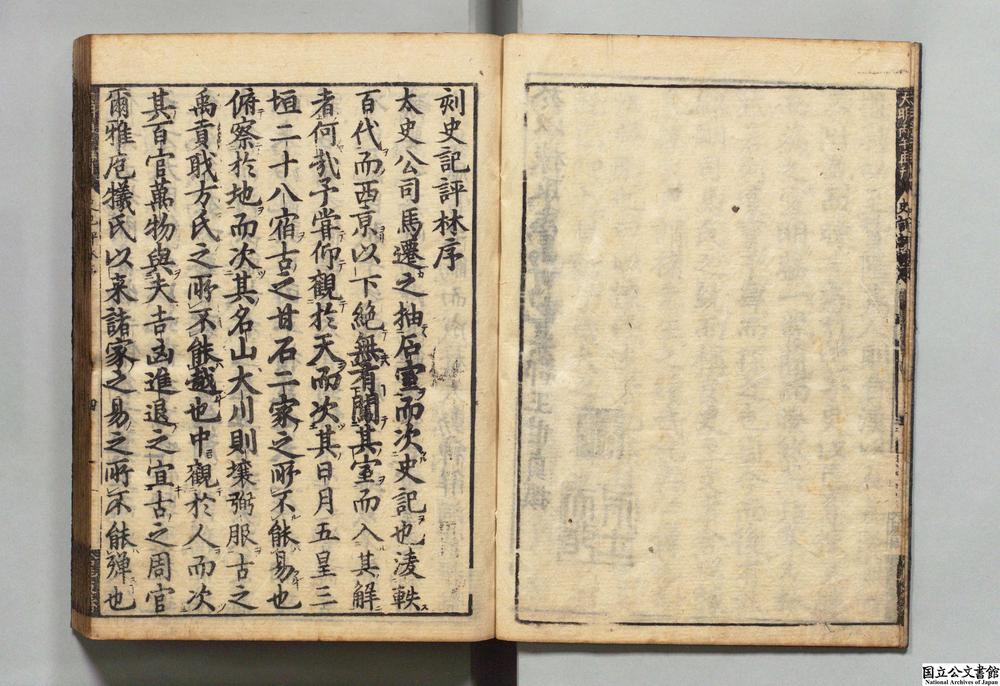 刻史記評林序
太史公司馬遷之抽石室而次史記也凌軼
百代而西京以下絶無有闖其室而入其解
者何㢤子甞仰觀於天而次其日月五星三
垣二十八宿古之甘石二家之所不能易也
俯察於地而次其名山大川則壤弼服古之
禹貢職方氏之所不能越也中觀於人而次
其百官萬物與夫吉凶進退之宜古之周官
爾雅庖犧氏以来諸家之易之所不能殫也
国立公文書館
National Archives of Japan